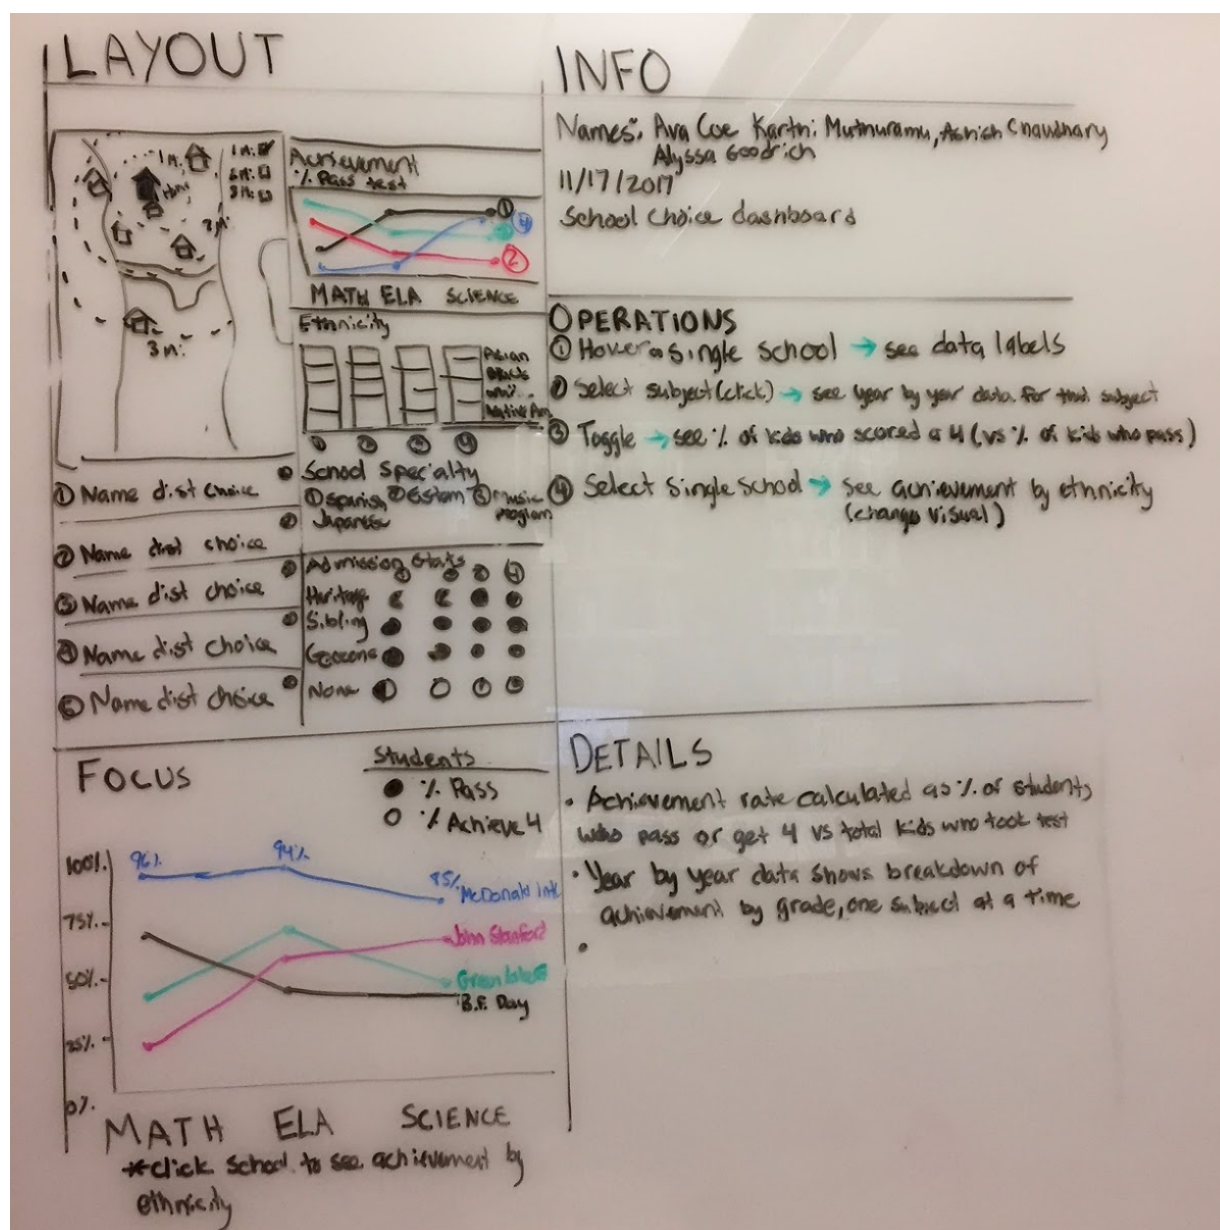 LAYOUT
1 Mi.
1 Mi.
2 Mi.
3 Mi.
Home
2 Mi.
3 Mi.
Achievement
% Pass test
① ④ ③ ②
MATH ELA SCIENCE
Ethnicity
Asian
Black
Native Am
① ② ③ ④
① Name dist choice
② Name dist choice
③ Name dist choice
④ Name dist choice
⑤ Name dist choice
School Specialty
① Spanish ② ③ Music
Japanese Program
Admission Stats
① ② ③ ④
Heritage
Sibling
Geozone
None
INFO
Names: Ava Coe Karthi Muthuramu, Ashish Chawdhary
Alyssa Goodrich
11/17/2017
School Choice dashboard
OPERATIONS
① Hover single school → see data labels
② Select subject (click) → see year by year data for that subject
③ Toggle → see % of kids who scored a 4 (vs % of kids who pass)
④ Select single school → see achievement by ethnicity
(change visual)
FOCUS
Students
% Pass
% Achieve 4
100%
75%
50%
25%
0%
96%
94%
85%
McDonald Intl
John Stanford
Green Lake
B.F. Day
MATH ELA SCIENCE
*click school to see achievement by
ethnicity
DETAILS
• Achievement rate calculated as % of students
who pass or get 4 vs total kids who took test
• Year by year data shows breakdown of
achievement by grade, one subject at a time
•